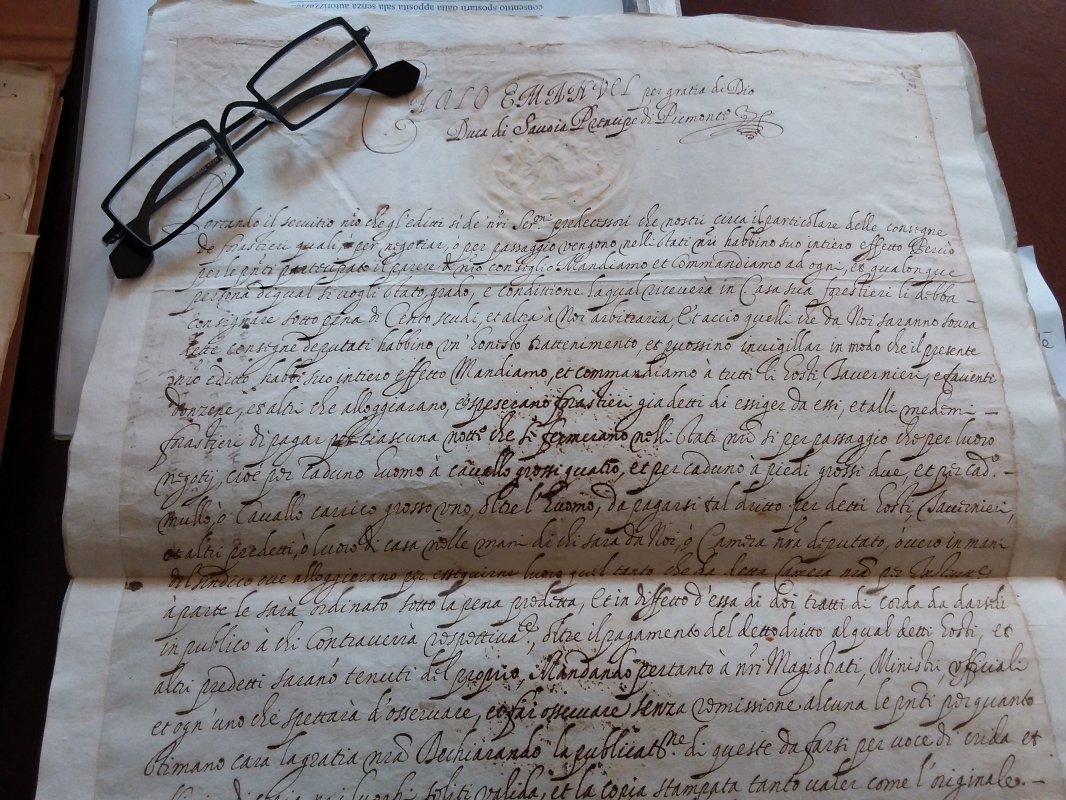 consentito spostarli dalla apposita sala senza autorizzazione
CARLO EMANVEL per gratia di Dio
Duca di Savoia Prencipe di Piemonte
il servitio nro che gl'editti si de nri Ser.mi predecessori che nostri circa il particolare delle consegne
de forastieri quali per negotiar, ò per passaggio vengono nelli stati nri habbino suo intiero effetto Perciò
per le pnti participato il parere d nro consiglio Mandiamo et Commandiamo ad ogni, et qualonque
persona di qual si vogli stato, grado, e condittione la qual ricevera in Casa sua forestieri li debba
consignare sotto pena di Cento scudi, et altra à Noi arbitraria, Et acciò quelli che da Noi saranno sovra
dette consegne deputati habbino un' honesto trattenimento, et puossino invigillar in modo che il presente
nro editto habbi suo intiero effetto Mandiamo, et commandiamo à tutti li hosti, Tavernieri, e facienti
donzene, et altri che alloggiarano, et spesarano forastieri già detti di essiger da essi, et alli medemi
forastieri di pagar per ciascuna notte che si fermerano nelli stati nri si per passaggio che per luoro
negotij, cioè per caduno huomo à cavallo grossi quatro, et per caduno à piedi grossi due, et per cad.o
mullo, ò Cavallo carrico grosso uno, oltre l'huomo, da pagarsi tal dritto per detti hosti, Tavernieri,
et altri predetti, ò luoro di casa nelle mani di chi sarà da Noi, ò Camera nra deputato, òvero in mani
del sindico ove alloggierano per esseguirne luoro quel tanto che da detta Camera nra per
à parte le sarà ordinato sotto la pena preditta, Et in diffetto d'essa di doi tratti di corda da darseli
in publico à chi contraverrà respettivate, oltre il pagamento del detto dritto al qual detti hosti, et
altri predetti saranó tenuti del proprio, Mandando pertanto à nri Magistrati, Ministri, ufficiali
et ogn'uno che spettarà d'osservare, et far osservare senza remissione alcuna le pnti per quanto
stimano cara la gratia nra Dechiarando la publicatne di queste da farsi per voce di crida et
soliti valida, et la copia stampata tanto valer come l'originale.